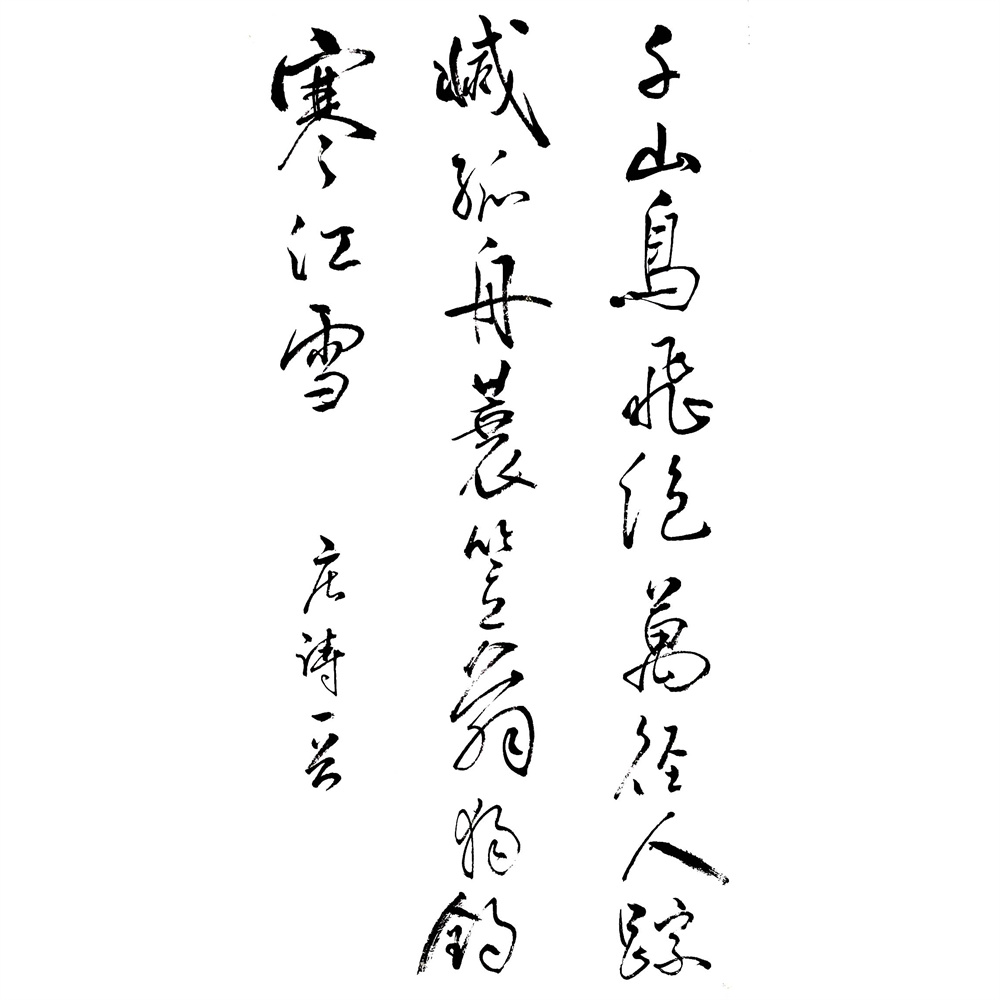 千山鳥飛絕萬徑人踪
滅孤舟蓑笠翁獨釣
寒江雪
唐詩一首